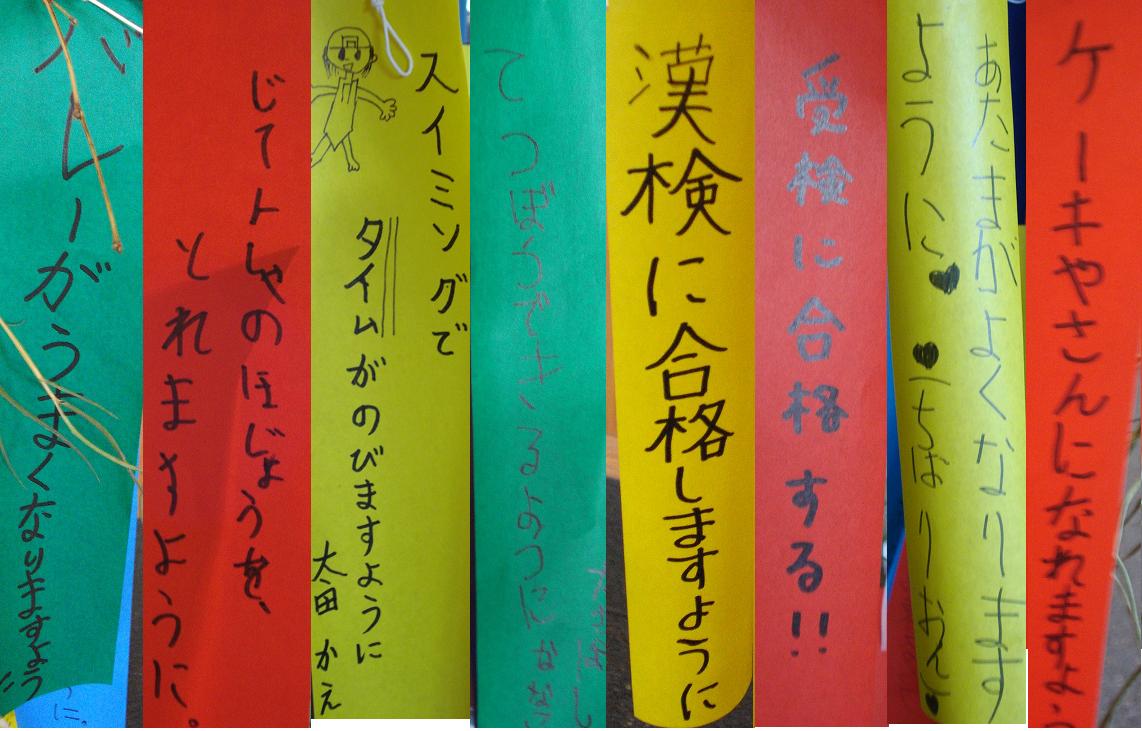 バレーがうまくなりますよう
に。
じてんしゃのほじょうを、
とれますように。
スイミングで
タイムがのびますように
太田 かえ
てつぼうできるように
漢検に合格しますように
受検に合格する!!
あたまがよくなります
ように♥
ケーキやさんになれますよう